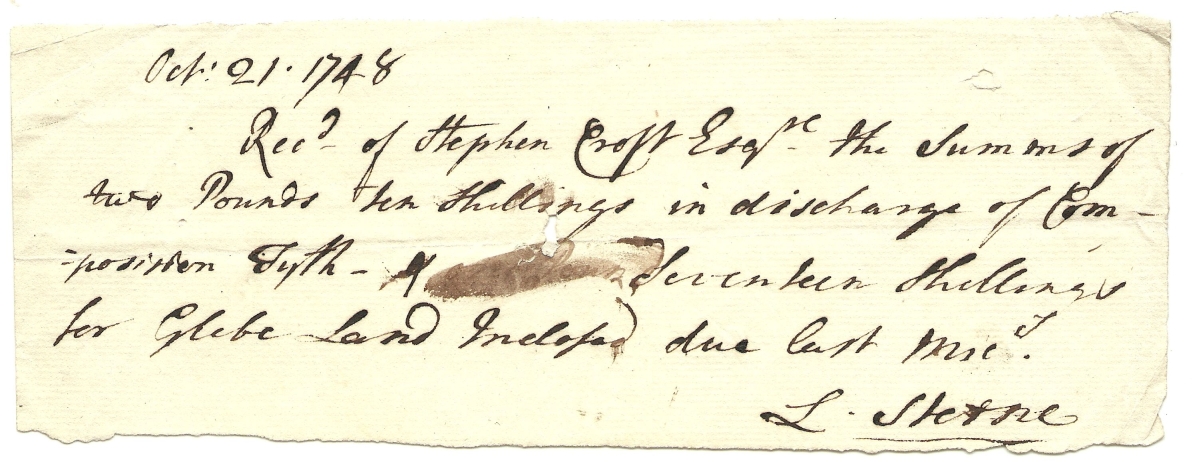 Oct: 21. 1748
Recd of Stephen Croft Esqre the Summs of
two Pounds ten Shillings in discharge of Com-
-position Tyth- & Seventeen Shillings
for Glebe Land Inclosed due last Mics.
L. Sterne